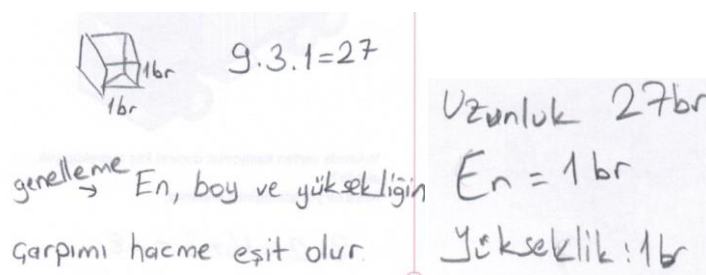 1br
1br
9.3.1=27
genelleme → En, boy ve yüksekliğin
çarpımı hacme eşit olur.
Uzunluk 27br
En = 1br
Yükseklik: 1br